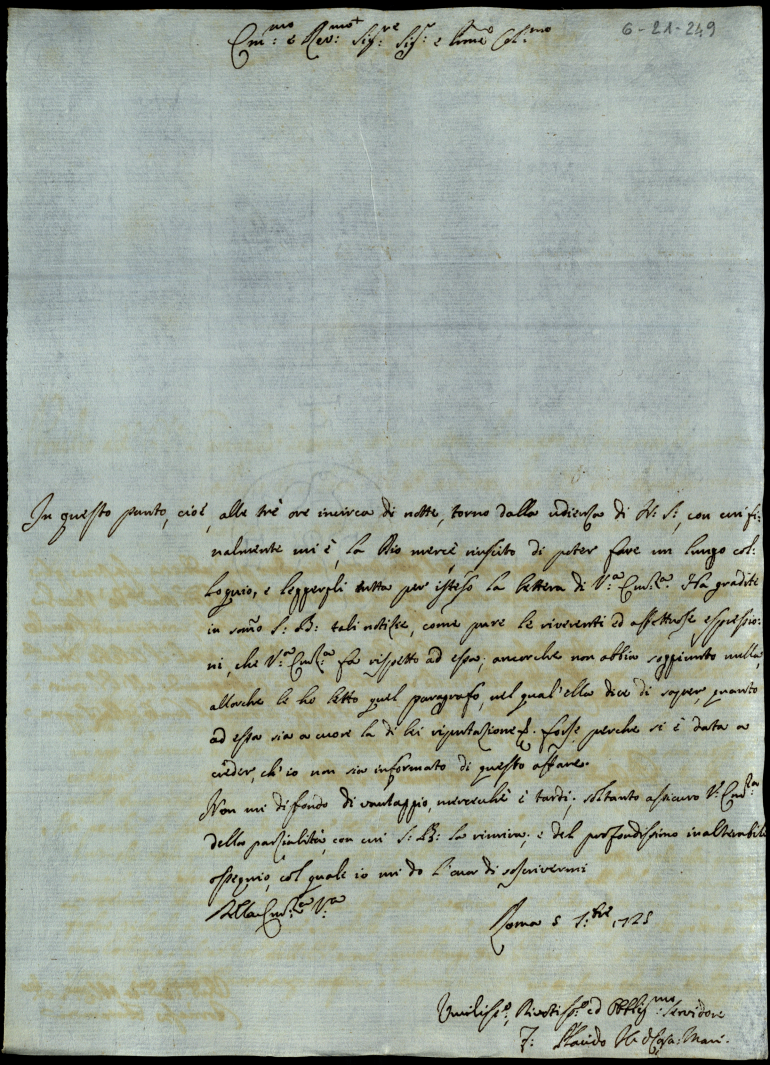 6-21-249
Em:mo e Rev:mo Sig:re Sig:r e Pne Col:mo
In questo punto, cioè, alle trè ore incirca di notte, torno dalla udienza di N: S:, con cui fi-
nalmente mi è, la Dio mercè, riuscito di poter fare un lungo col-
loquio, e leggergli tutta per isteso la lettera di V:a Em:za. Ha gradite
in som̃o S: B: tali notizie, come pure le riverenti ed affettuose espressio-
ni, che V:a Em:za fa rispetto ad essa; ancorche non abbia soggiunto nulla,
allorche le ho letto quel paragrafo, nel qual'ella dice di saper, quanto
ad essa sia a cuore la di lei riputazione. forse perche si è data a
creder, ch'io non sia informato di questo affare.
Non mi difondo di vantaggio, mercechè è tardi; soltanto assicuro V: Em:za
della parzialità, con cui S: B: la rimira; e del profondissimo inalterabile
ossequio, col quale io mi do l'onor di soscrivermi
Della Em:za V:a
Roma 5 7:bre 1725
Umiliss:o, Divotiss:o ed Obblig:mo Servidore
F: Placido